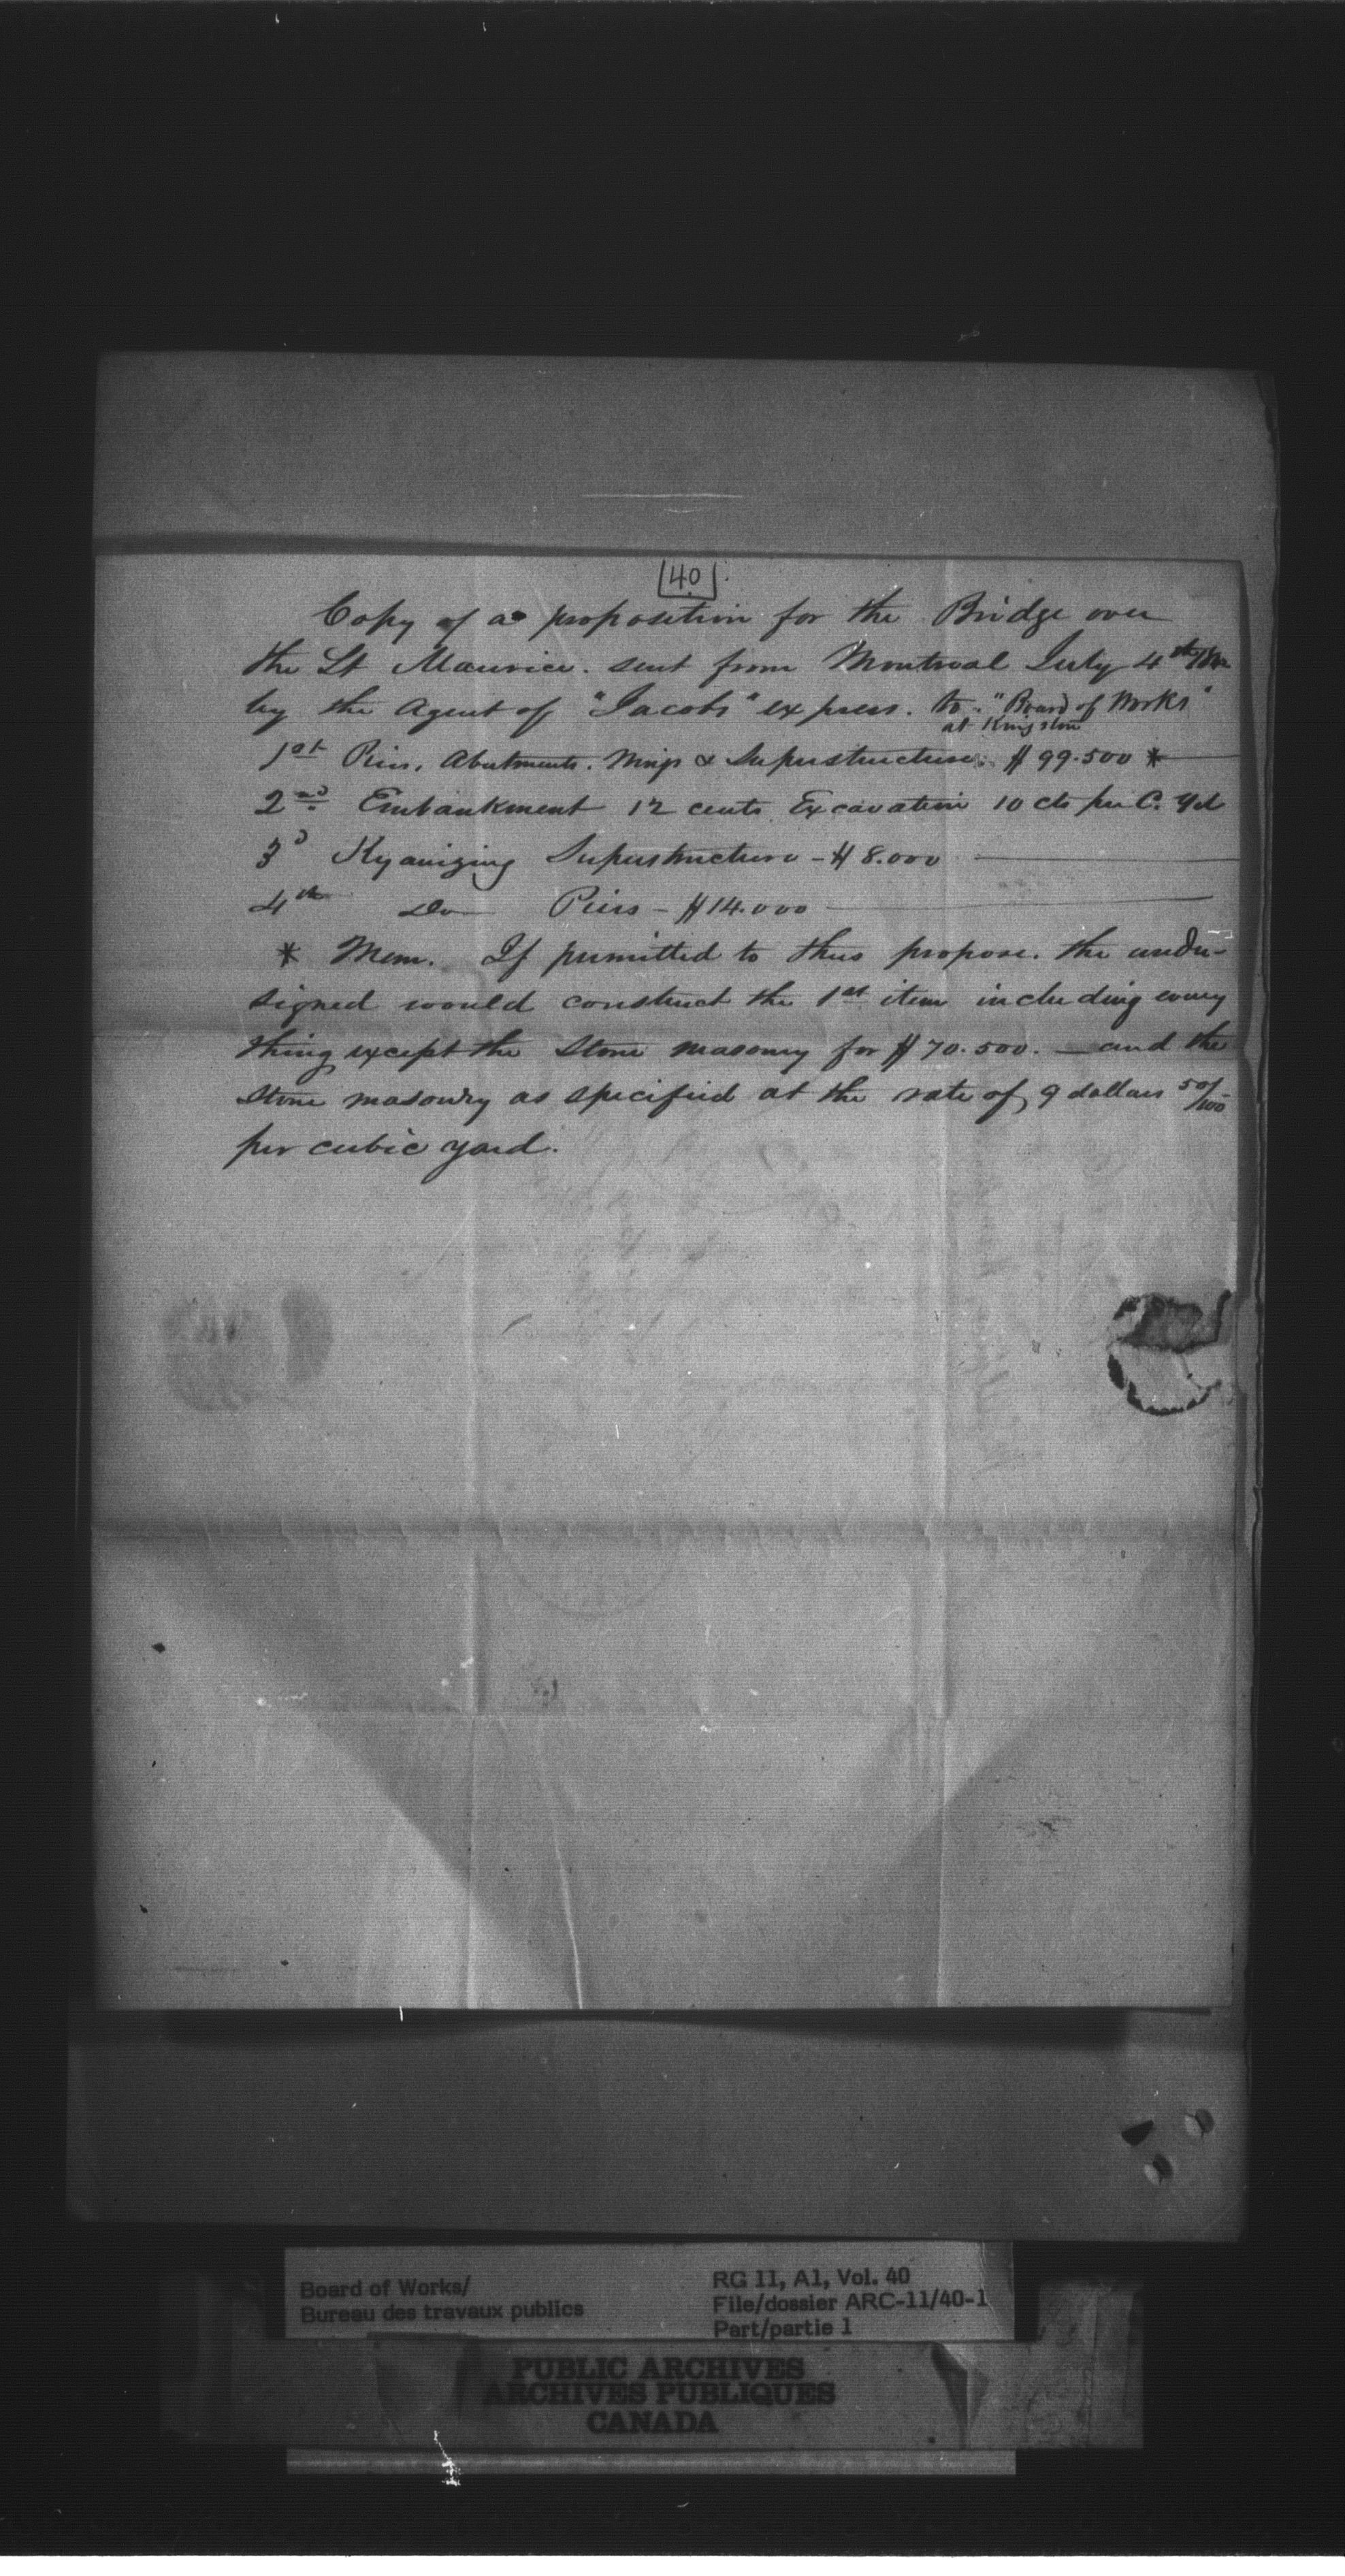 40
Copy of a proposition for the Bridge over
the St Maurice. sent from Montreal July 4th
by the Agent of "Jacobs" express. to. "Board of Works"
at Kingston
1st Piers, Abutments. Wings & Superstructure. $ 99.500 *
2nd Embankment 12 cents Excavation 10 cts per C. Yd
3d Kyanizing Superstructure - $ 8.000
4th Do Piers - $ 14.000
* Mem. If permitted to thus propose. the under-
signed would construct the 1st item including every
thing except the Stone masonry for $ 70.500. — and the
Stone masonry as specified at the rate of 9 dollars 50/100
per cubic yard.
Board of Works/
Bureau des travaux publics
RG 11, A1, Vol. 40
File/dossier ARC-11/40-1
Part/partie 1
PUBLIC ARCHIVES
ARCHIVES PUBLIQUES
CANADA